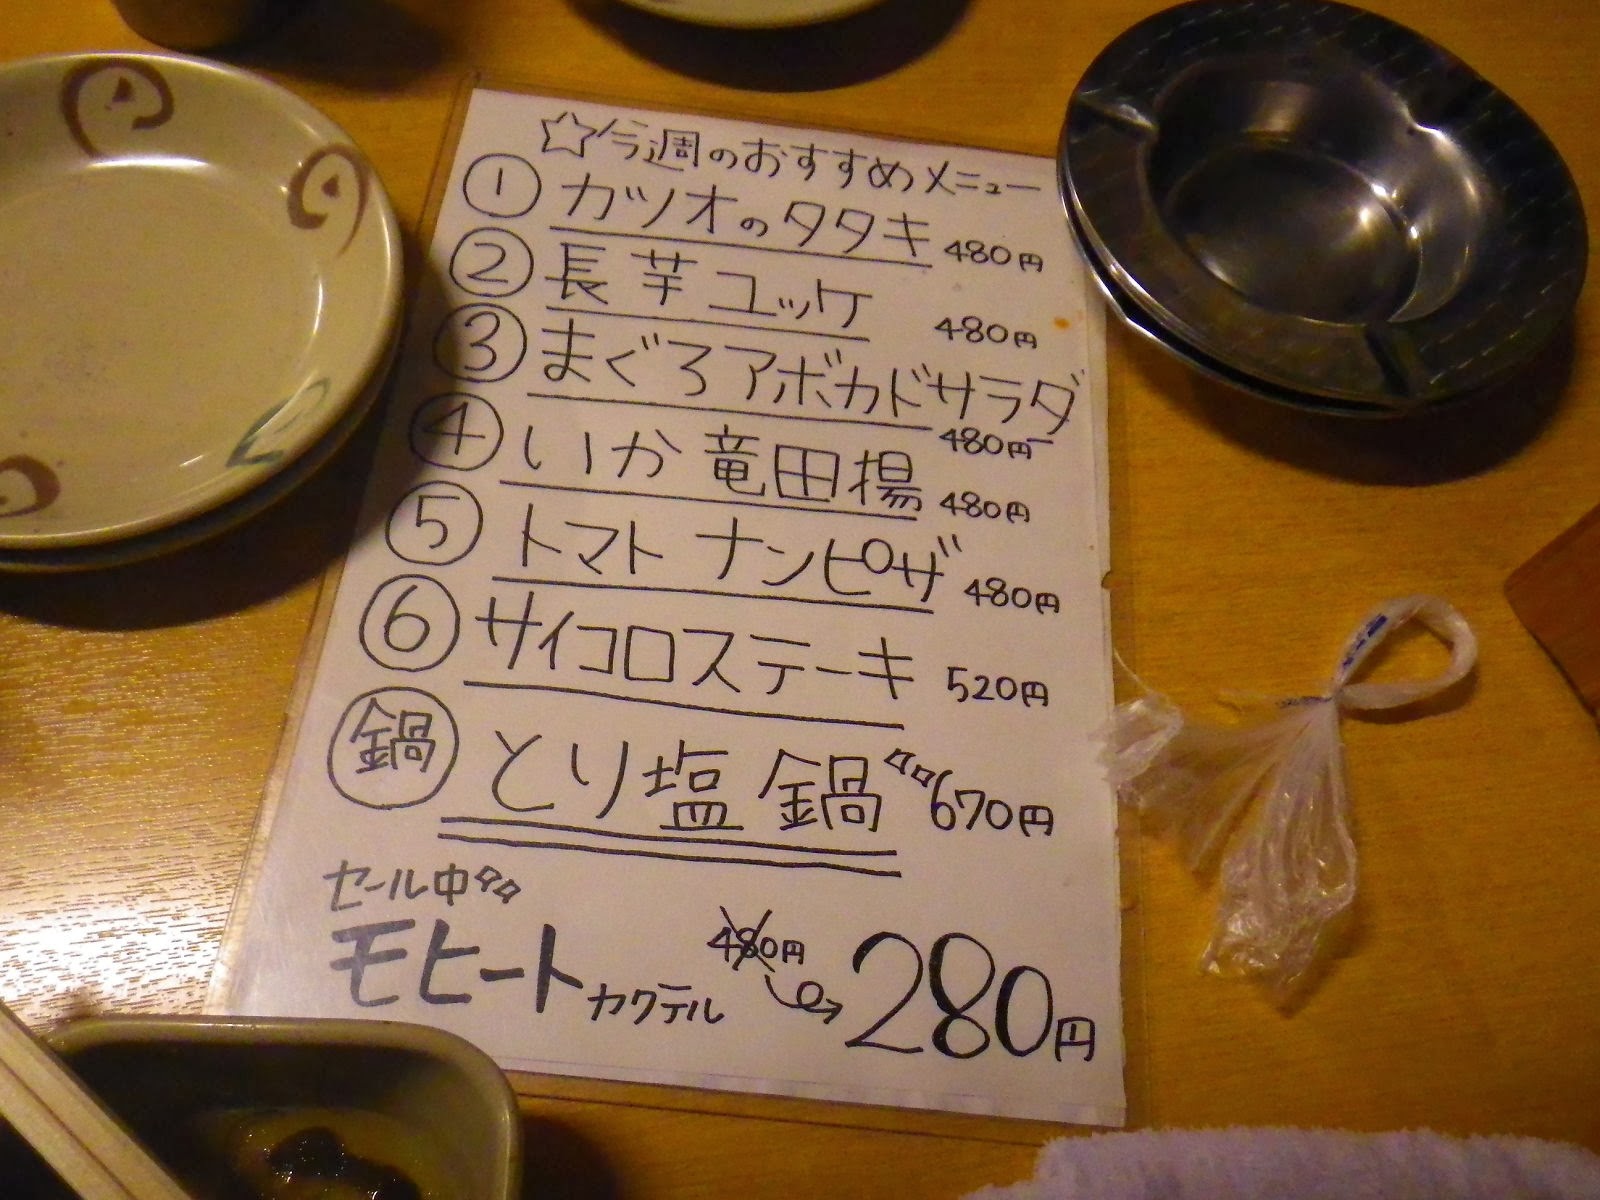 ☆今週のおすすめメニュー
① カツオのタタキ 480円
② 長芋ユッケ 480円
③ まぐろアボカドサラダ 480円
④ いか竜田揚 480円
⑤ トマトナンピザ 480円
⑥ サイコロステーキ 520円
鍋 とり塩鍋 670円
セール中
モヒートカクテル 480円 280円